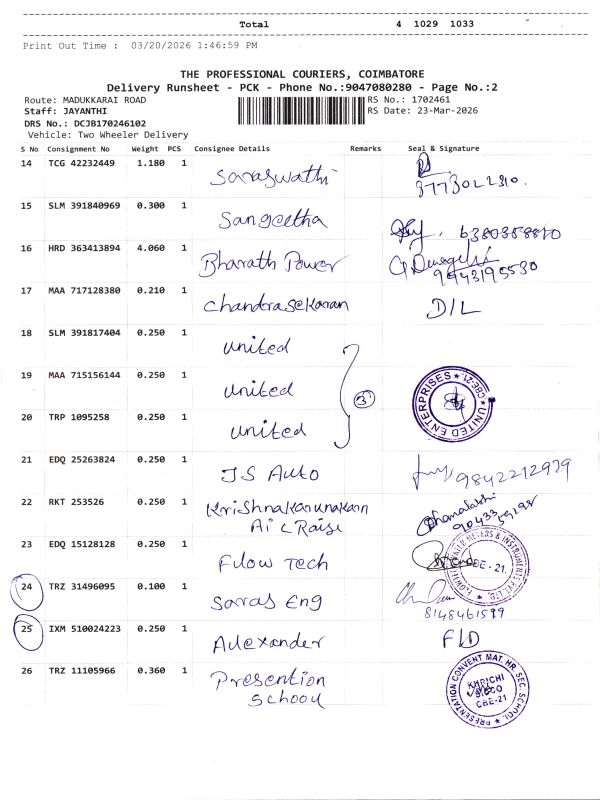 Total 4 1029 1033
Print Out Time : 03/20/2026 1:46:59 PM
THE PROFESSIONAL COURIERS, COIMBATORE
Delivery Runsheet - PCK - Phone No.:9047080280 - Page No.:2
Route: MADUKKARAI ROAD
RS No.: 1702461
Staff: JAYANTHI
RS Date: 23-Mar-2026
DRS No.: DCJB170246102
Vehicle: Two Wheeler Delivery
S No Consignment No Weight PCS Consignee Details Remarks Seal & Signature
14 TCG 42232449 1.180 1 Saraswathi
15 SLM 391840969 0.300 1 Sangeetha
16 HRD 363413894 4.060 1 Bharath Power 9943195530
17 MAA 717128380 0.210 1 Chandrasekaran D/L
18 SLM 391817404 0.250 1 united
19 MAA 715156144 0.250 1 united
3
UNITED ENTERPRISES ★ CBE-21. ★
20 TRP 1095258 0.250 1 united
21 EDQ 25263824 0.250 1 JS Auto 9842212979
22 RKT 253526 0.250 1 Krishnakarunakarn
Ai c Raise
23 EDQ 15128128 0.250 1 Flow Tech
CBE - 21.
24 TRZ 31496095 0.100 1 Saras Eng
25 IXM 510024223 0.250 1 Alexander F/D
26 TRZ 11105966 0.360 1 Presention
School
PRESENTATION CONVENT MAT. HR. SEC. SCHOOL ★
SIDCO
CBE-21